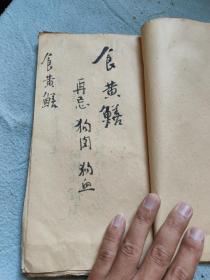 食黄鳝
再忌狗肉狗血
食黄鳝